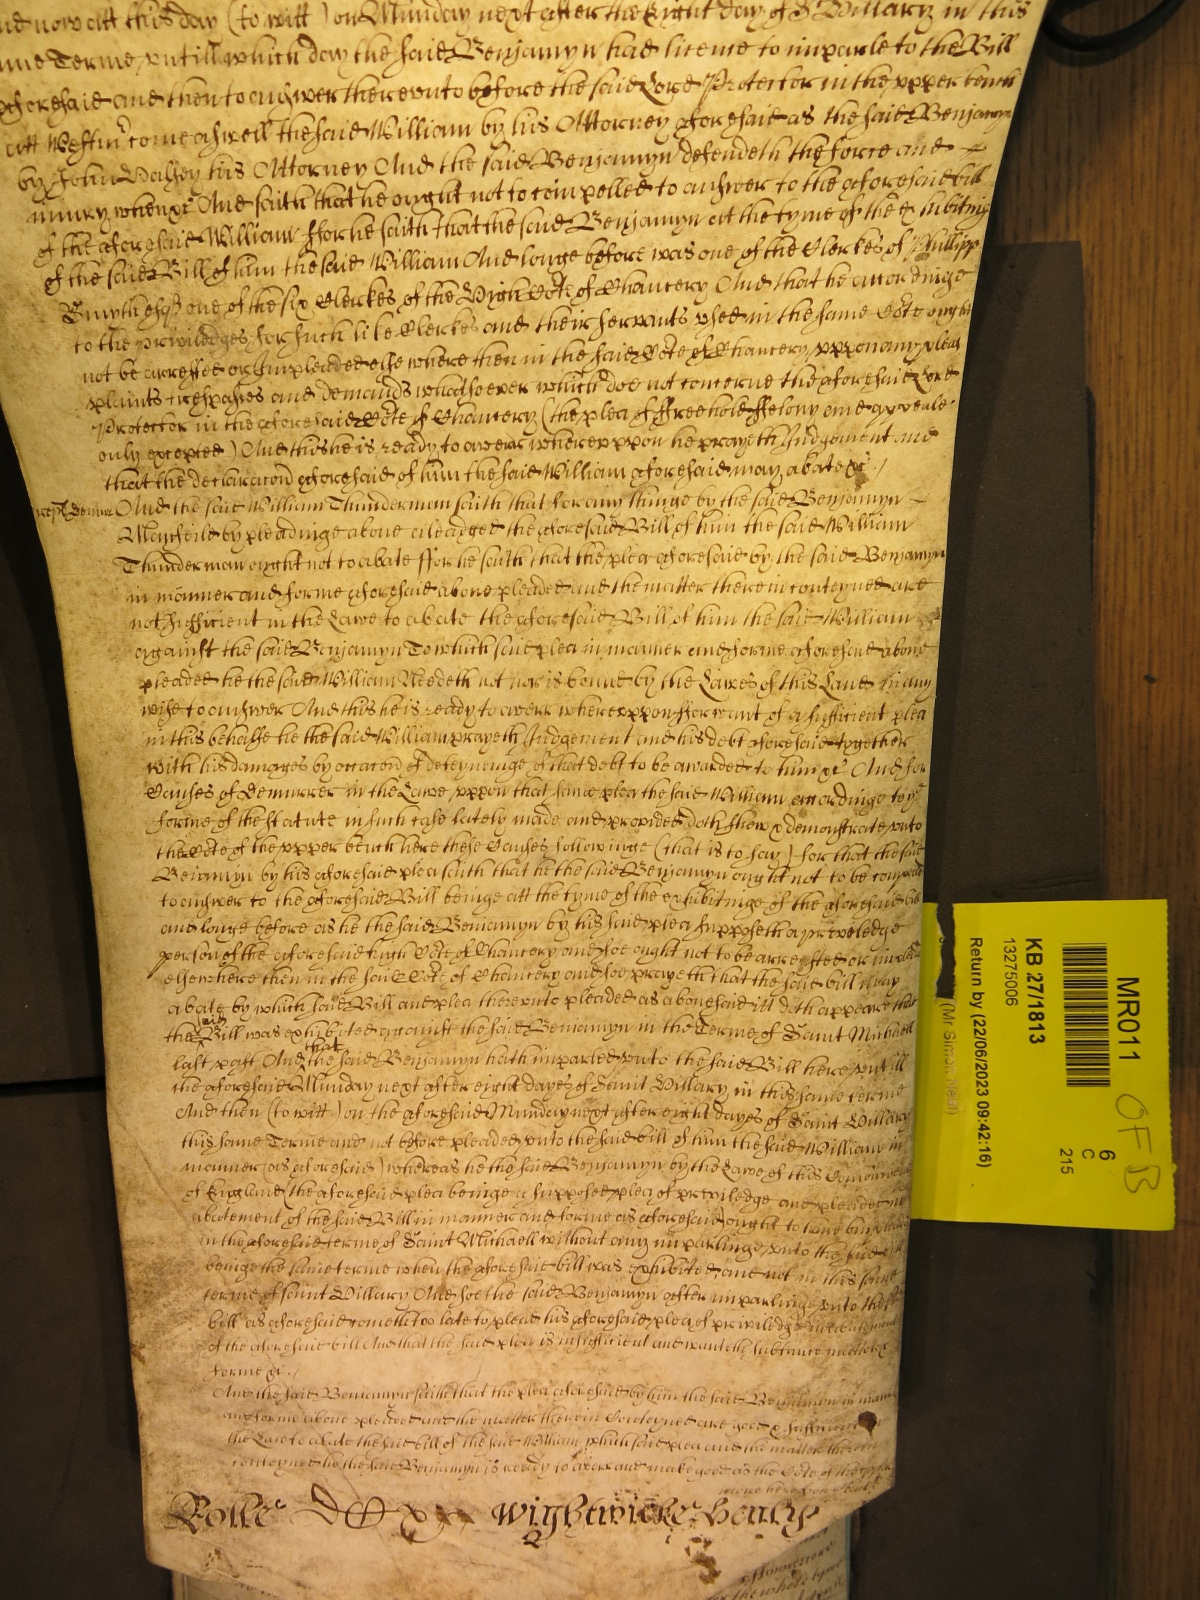 now att this day (to witt) on Munday next after the Eight day of St Hillary in this
same Terme untill which day the said Benjamyn had licence to imparle to the Bill
aforesaid and then to answer thereunto before the said Lord Protector in the upper bench
att Westmr come aswell the said William by his Attorney aforesaid as the said Benjamyn
by John his Attorney And the said Benjamyn defendeth the force and
iniury when &c And saith that he ought not to compelled to answer to the aforesaid bill
of the aforesaid William ffor he saith that the said Benjamyn att the tyme of the exhibiting
of the said Bill of him the said William And longe before was one of the Clerkes of Phillipp
one of the six Clerkes of the High Cote of Chancery And that he accordinge
to the priviledges for such like Clerkes and their servants used in the same Cote ought
not be arrested or Impleaded else where then in the said Cote of Chancery uppon any pleas
plaints trespasses and demands whatsoever which doe not concerne the aforesaid Lord
Protector in the aforesaid Cote of Chancery (the plea of ffreehold ffelony and appeale
only excepted) And this he is ready to averr whereuppon he prayeth Judgement and
that the declaracon aforesaid of him the said William aforesaid may abate &c
And the said William Thunderman saith that for any thinge by the said Benjamyn
by pleadinge above aleadged the aforesaid Bill of him the said William
Thunderman ought not to abate ffor he saith that the plea aforesaid by the said Benjamyn
in manner and forme aforesaid above pleaded and the matter therein conteyned are
not sufficient in the Lawe to abate the aforesaid Bill of him the said William
against the said Benjamyn To which said plea in manner and forme aforesaid above
pleaded he the said William Needeth not nor is bound by the Lawes of this Land in any
wise to answer And this he is ready to averr whereuppon ffor want of a sufficient plea
in this behalfe he the said William prayeth Judgement and his debt aforesaid together
with his damages by occacon of deteyninge of that debt to be awarded to him &c And for
Causes of demurrer in the Lawe uppon that same plea the said William accordinge to ye
forme of the statute in such case lately made and provided doth shew & demonstrate unto
the Cote of the upper bench here these Causes followinge (that is to say) for that the said
Benjamyn by his aforesaid plea saith that he the said Benjamyn ought not to be compelled
to answer to the aforesaid Bill beinge att the tyme of the exhibitinge of the aforesaid bill
and longe before as he the said Benjamyn by his said plea supposeth a priveledge
person of the aforesaid high Cote of Chancery and soe ought not to be arrested or impleaded
elsewhere then in the said Cote of Chancery and soe prayeth that the said bill may
abate by which said Bill and plea thereunto pleaded as abovesaid itt doth appeare that
the said Bill was exhibited against the said Benjamyn in the Terme of Saint Michaell
last past And that the said Benjamyn hath imparled unto the said Bill here untill
the aforesaid Munday next after eight dayes of Saint Hillary in this same terme
And then (to witt) on the aforesaid Munday next after eight dayes of Saint Hillary
this same Terme and not before pleaded unto the said bill of him the said William in
manner (as aforesaid) whereas he the said Benjamyn by the Lawe of this Comonwealth
of England (the aforesaid plea beinge a supposed plea of priviledge and pleaded in
abatement of the said Bill in manner and forme as aforesaid) ought to have
in the aforesaid terme of Saint Michaell without any imparlinge unto the said bill
beinge the same terme when the aforesaid bill was exhibited and not in this same
terme of saint Hillary And soe the said Benjamyn after imparlinge unto the
bill as aforesaid cometh too late to plead his aforesaid plea of priviledge in abatement
of the aforesaid bill And that the said plea is insufficient and wanteth substance matter &
forme &c
And the said Benjamyn saith that the plea aforesaid by him the said Benjamyn in manner
and forme above pleaded and the matter therein Conteyned are good & sufficient in
the Lawe to abate the said bill of the said William which said plea and the matter therein
conteyned he the said Benjamyn is ready to averr and make good as the Cote of the upper
Rolle Wightwicke
MR011
KB 27/1813
13275006
Return by (22/06/2023 09:42:16)
6
C
215
OFB